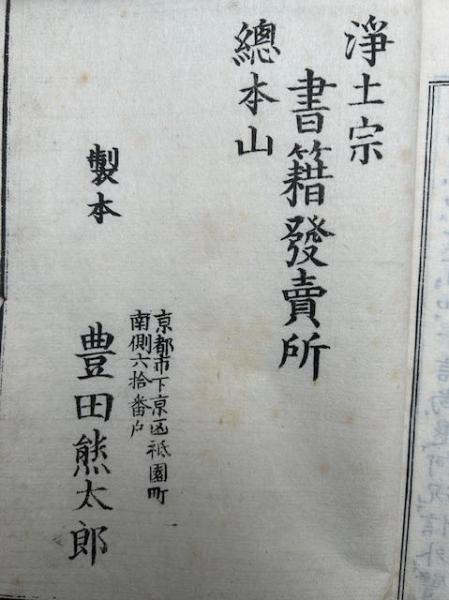 淨土宗
書籍發賣所
總本山
京都市下京區祇園町
南側六拾番戶
製本
豊田熊太郎